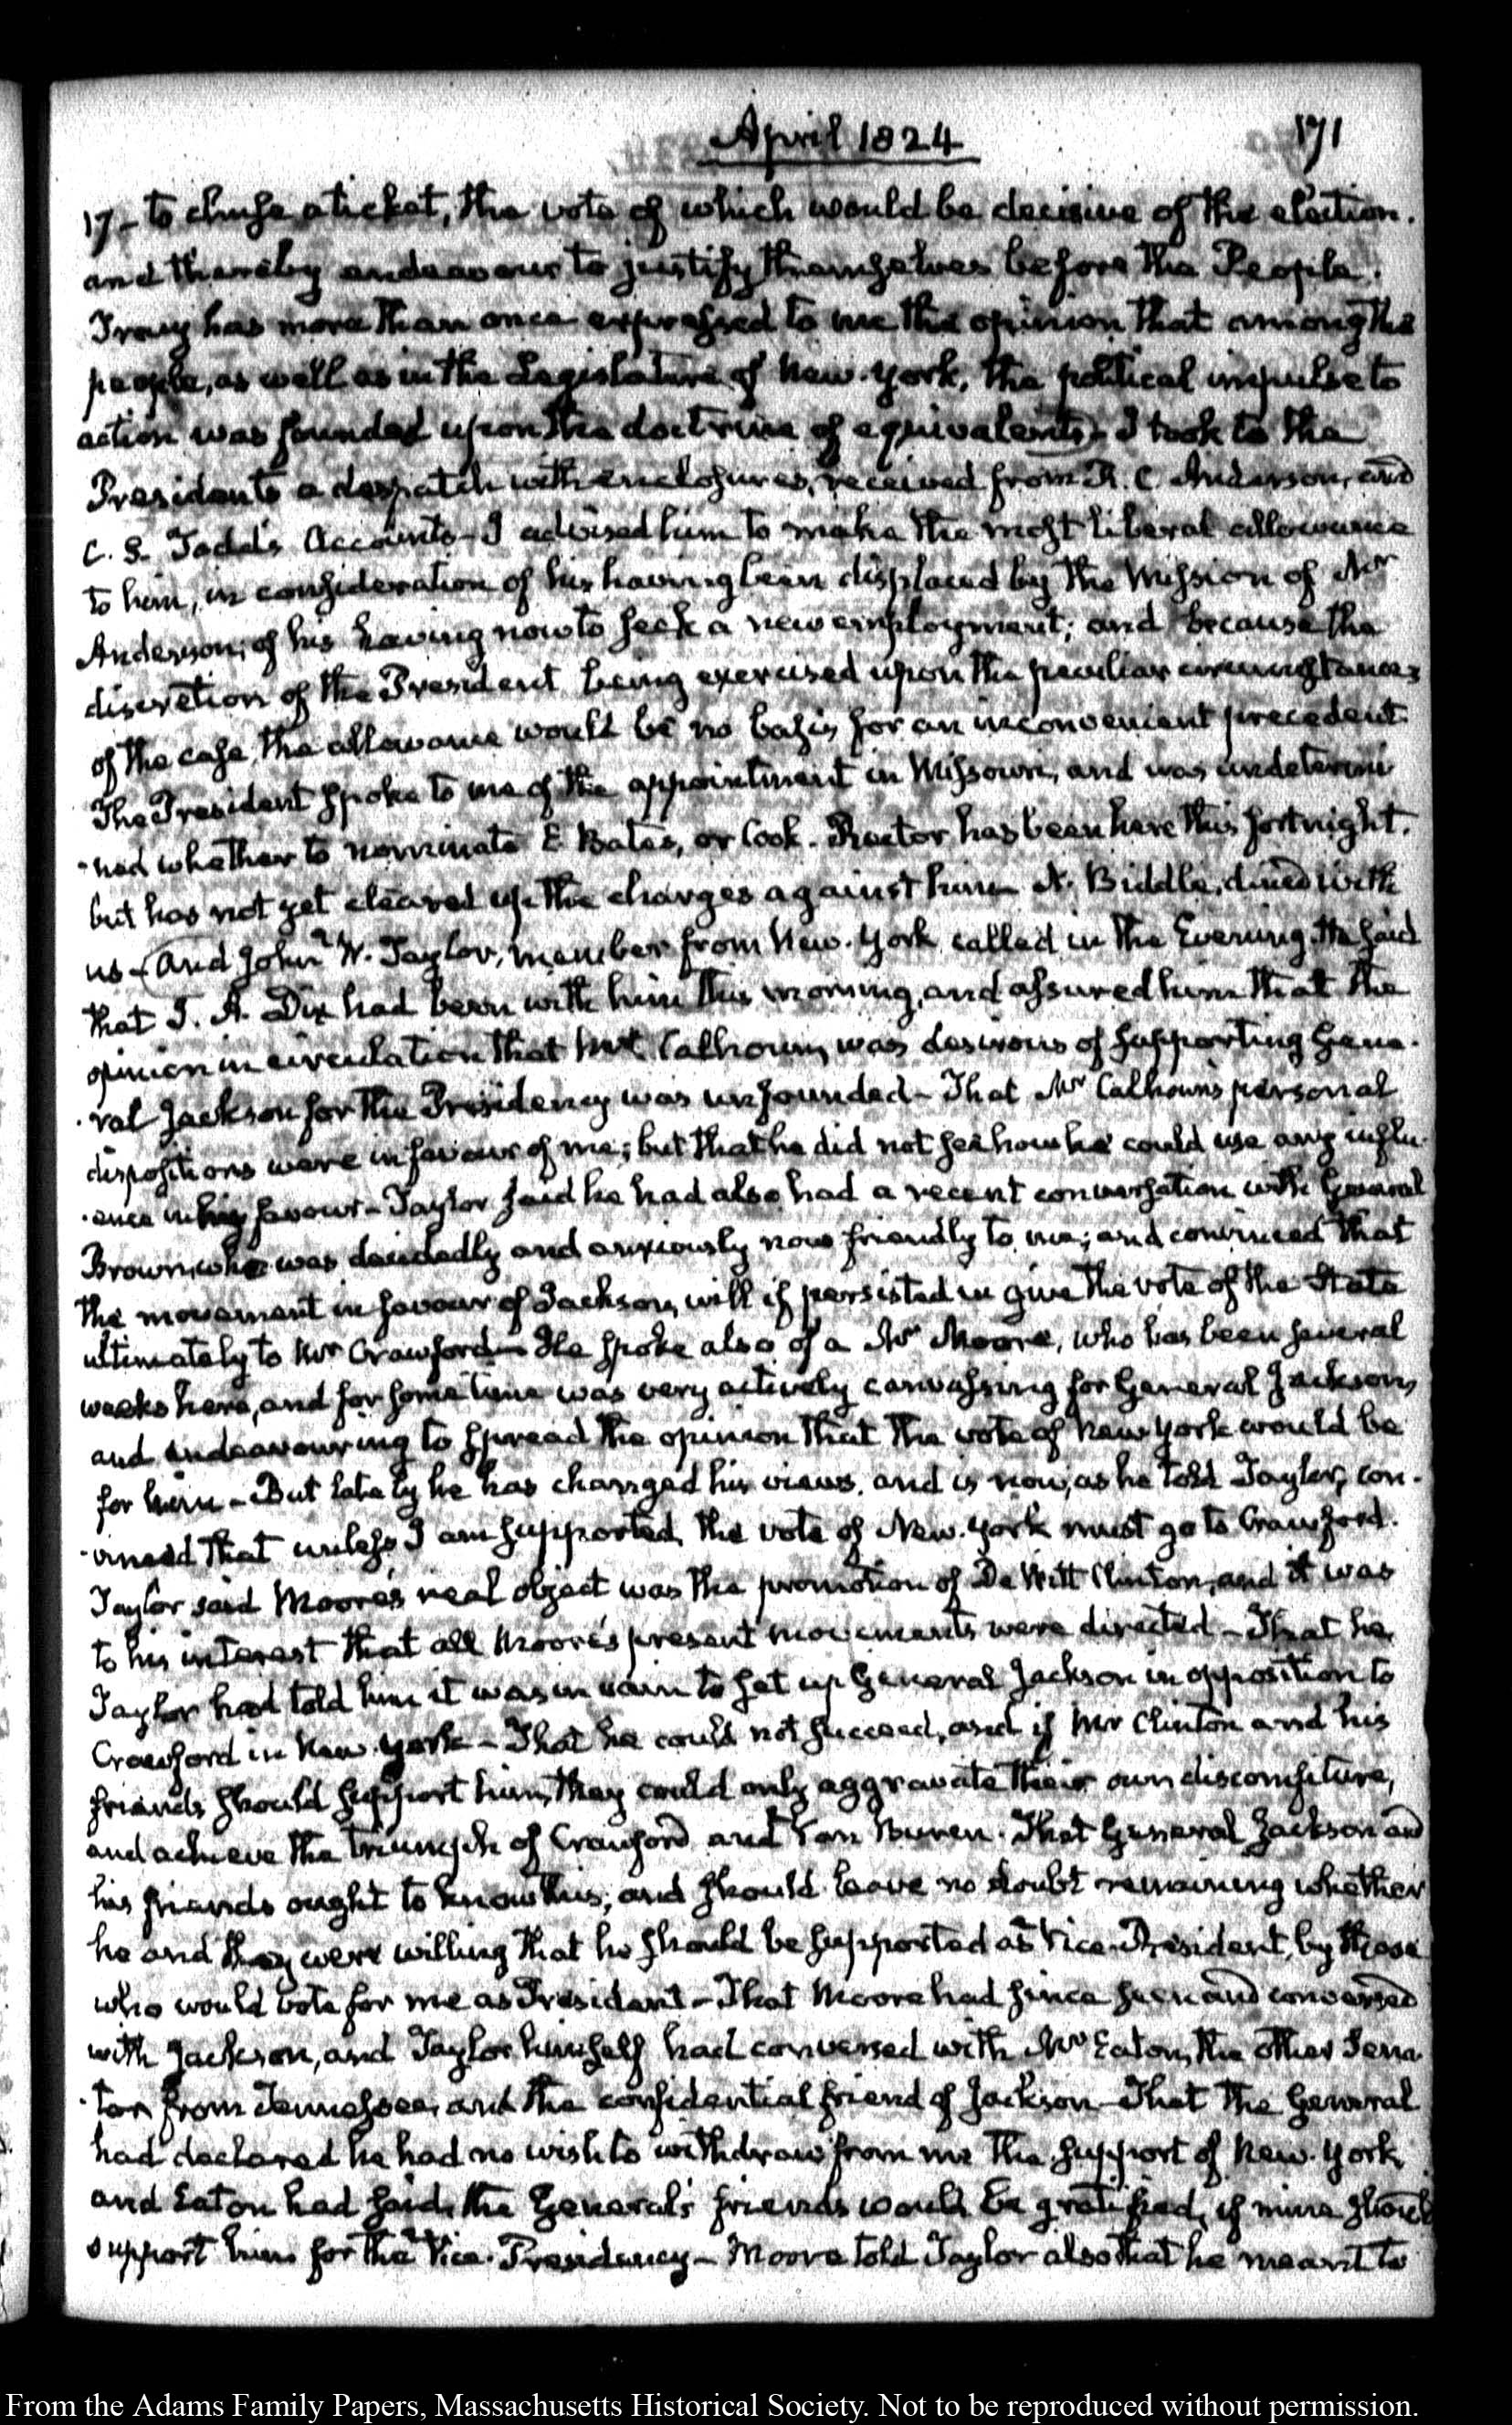 April 1824
171
17- to chuse a ticket, the vote of which would be decisive of the election.
and thereby endeavour to justify themselves before the People.
Tracy has more than once expressed to me the opinion that among the
people, as well as in the Legislature of New-York, the political impulse to
action was founded upon the doctrine of equivalents- I took to the
President's a despatch with enclosures, received from R. C. Anderson, and
C. S. Todd's Accounts- I advised him to make the most liberal allowance
to him, in consideration of his having been displaced by the Mission of Mr
Anderson; of his having now to seek a new employment; and because the
discretion of the President being exercised upon the peculiar circumstances
of the case, the allowance would be no basis for an inconvenient precedent.
The President spoke to me of the appointment in Missouri, and was undetermi
-ned whether to nominate E Bates, or Cook. Rector has been here this fortnight.
but has not yet cleared up the charges against him- N. Biddle, dined with
us- And John W. Taylor, member from New-York called in the Evening. He said
that J. A. Dix had been with him this morning, and assured him that the
opinion in circulation that Mr Calhoun, was desirous of supporting Gene-
-ral Jackson for the Presidency was unfounded- That Mr Calhoun's personal
dispositions were in favour of me; but that he did not see how he could use any influ-
-ence in my favour- Taylor said he had also had a recent conversation with General
Brown, who was decidedly and anxiously now friendly to me; and convinced that
the movement in favour of Jackson, will if persisted in give the vote of the State
ultimately to Mr Crawford- He spoke also of a Mr Moore, who has been several
weeks here, and for some time was very actively canvassing for General Jackson,
and endeavouring to spread the opinion that the vote of New York would be
for him- But lately he has changed his views, and is now, as he told Taylor, con-
-vinced that unless I am supported, the vote of New-York must go to Crawford.
Taylor said Moore's real object was the promotion of De Witt Clinton, and it was
to his interest that all Moore's present movements were directed- That he
Taylor had told him it was in vain to set up General Jackson in opposition to
Crawford in New York- That he could not succeed, and if Mr Clinton and his
friends should support him, they could only aggravate their own discomfiture,
and achieve the triumph of Crawford and Van Buren. That General Jackson and
his friends ought to know this, and should leave no doubt remaining whether
he and they were willing that he should be supported as Vice-President, by those
who would vote for me as President- That Moore had since seen and conversed
with Jackson, and Taylor himself had conversed with Mr Eaton, the other Sena-
-tor from Tennessee, and the confidential friend of Jackson- That the General
had declared he had no wish to withdraw from me the support of New-York,
and Eaton had said, the General's friends would be gratified, if mine should
support him for the Vice-Presidency- Moore told Taylor also that he meant to
From the Adams Family Papers, Massachusetts Historical Society. Not to be reproduced without permission.